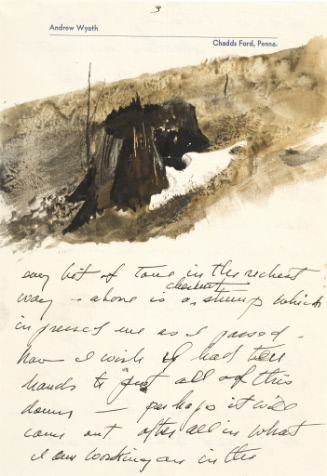 3
Andrew Wyeth
Chadds Ford, Penna.
bit of tone in the richest
way – above is a chestnut stump which
me as I passed –
how I wish I had
hands to get all of this
down — perhaps it will
come out after all in what
I am working on in the